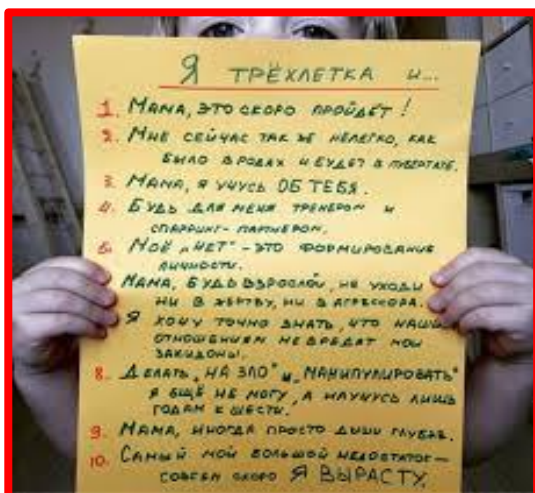 Я ТРЁХЛЕТКА И...
1. МАМА, ЭТО СКОРО ПРОЙДЁТ!
2. МНЕ СЕЙЧАС ТАК ЖЕ НЕЛЕГКО, КАК
БЫЛО В РОДАХ И БУДЕТ В ПУБЕРТАТЕ.
3. МАМА, Я УЧУСЬ ОБ ТЕБЯ.
4. БУДЬ ДЛЯ МЕНЯ ТРЕНЕРОМ И
СПАРРИНГ-ПАРТНЁРОМ.
5. МОЁ „НЕТ" - ЭТО ФОРМИРОВАНИЕ
ЛИЧНОСТИ.
МАМА, БУДЬ ВЗРОСЛОЙ, НЕ УХОДИ
НИ В ЖЕРТВУ, НИ В АГРЕССОРА.
Я ХОЧУ ТОЧНО ЗНАТЬ, ЧТО НАШИМ
ОТНОШЕНИЯМ НЕ ВРЕДЯТ МОИ
ЗАКИДОНЫ.
8. ДЕЛАТЬ „НА ЗЛО" И „МАНИПУЛИРОВАТЬ"
Я ЕЩЁ НЕ МОГУ, А НАУЧУСЬ ЛИШЬ
ГОДАМ К ШЕСТИ.
9. МАМА, ИНОГДА ПРОСТО ДЫШИ ГЛУБЖЕ.
10. САМЫЙ МОЙ БОЛЬШОЙ НЕДОСТАТОК —
СОВСЕМ СКОРО Я ВЫРАСТУ.